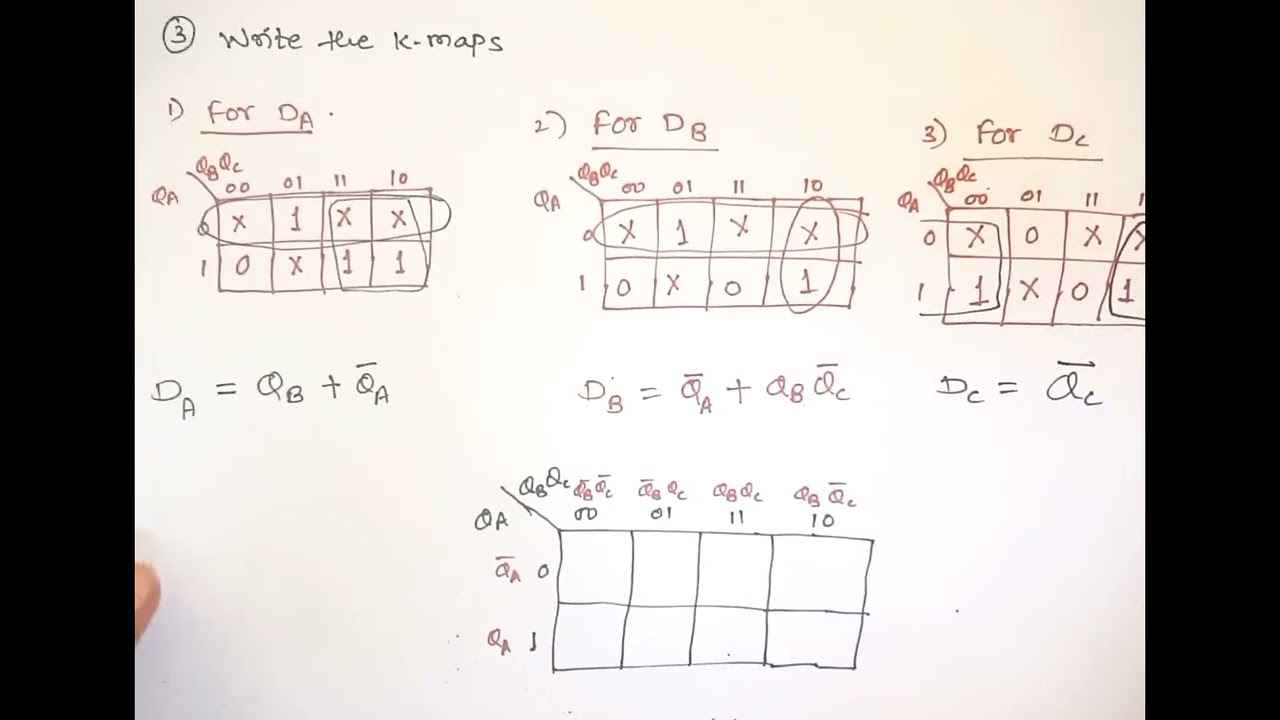 ③ Write the K-maps
1) For D_A .
2) For D_B
3) For D_C
Q_BQ_C
Q_A 00 01 11 10
0 X 1 X X
1 0 X 1 1
Q_BQ_C
Q_A 00 01 11 10
0 X 1 X X
1 0 X 0 1
Q_BQ_C
Q_A 00 01 11 1
0 X 0 X X
1 1 X 0 1
D_A = Q_B + Q̅_A
D_B = Q̅_A + Q_B Q̅_C
D_C = Q̅_C
Q_BQ_C Q̅_BQ̅_C Q̅_BQ_C Q_BQ_C Q_BQ̅_C
Q_A 00 01 11 10
Q̅_A 0
Q_A 1